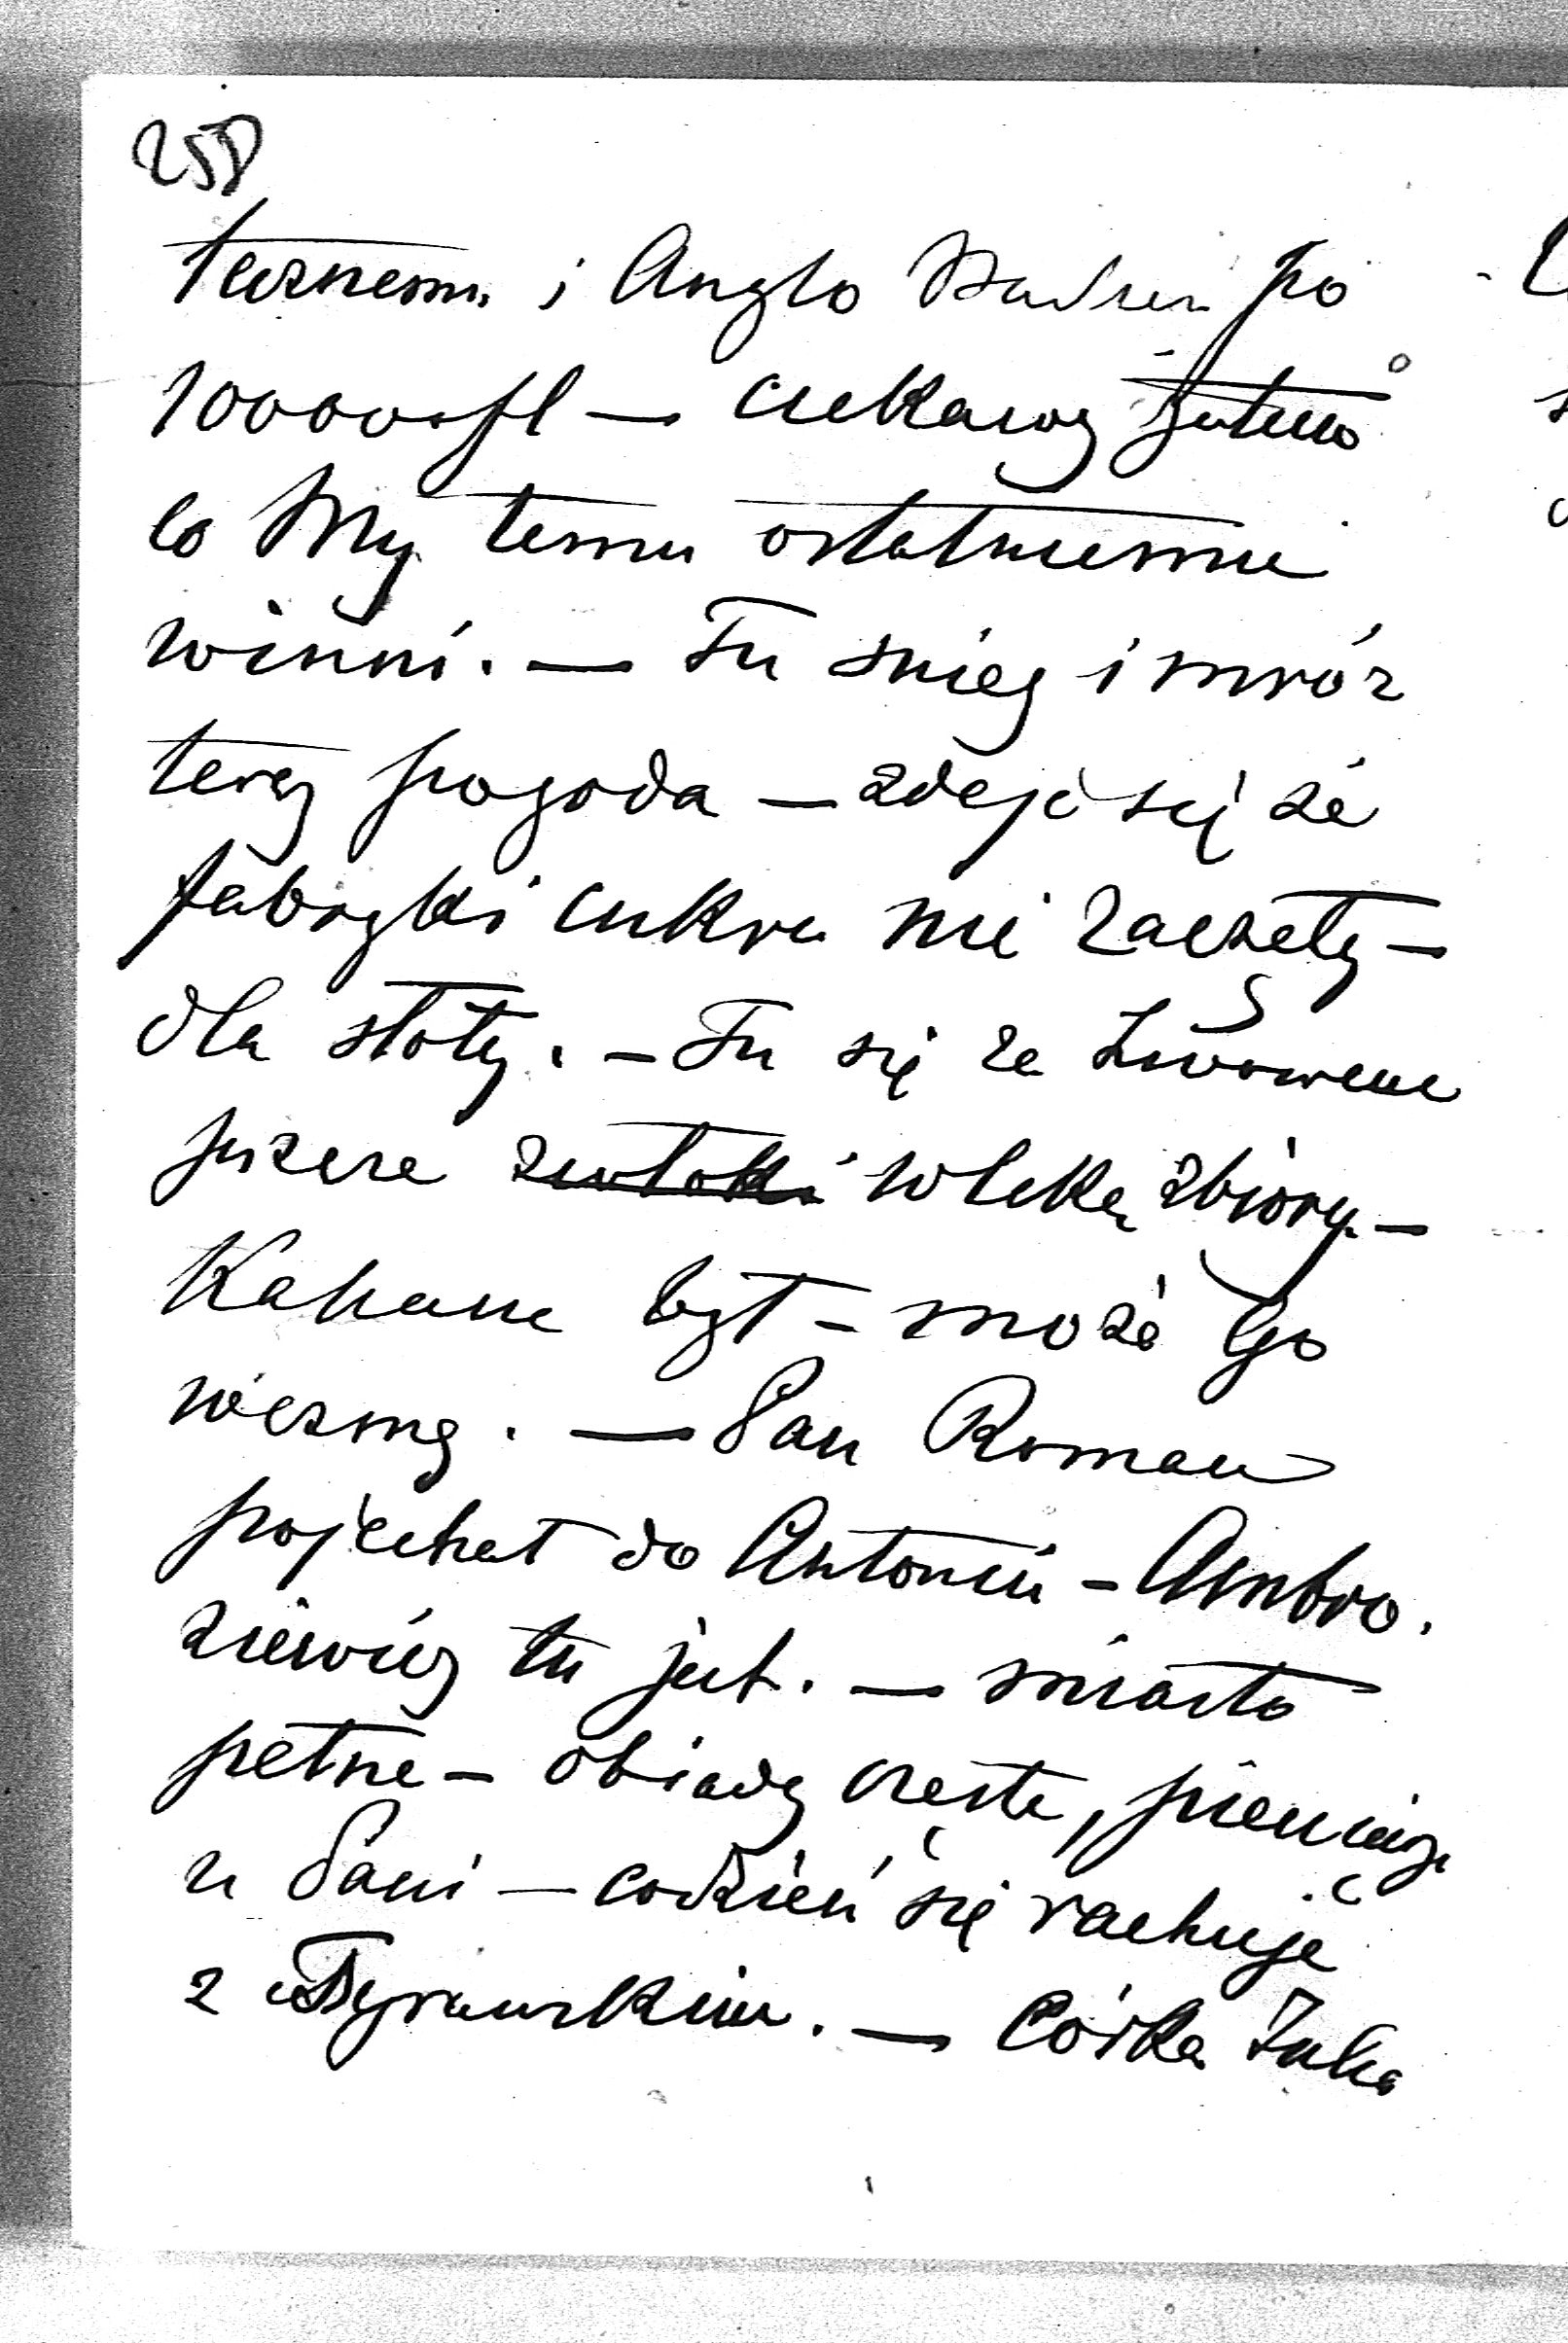 258
tecznemu i Anglo po
10000 fl — ciekawy
co My temu ostatniemu
winni. — Tu śnieg i mróz
teraz pogoda — zdaje się że
fabryki cukru nie zaczęły —
dla słoty. — Tu się ze Lwowem
zwłoki wleką zbiory. —
Kahane był — może Go
wezmę. — Pan Roman
pojechał do Antonin — Ambro.
ziewicz tu jest. — miasto
pełne — obiady częste, pieniądze
u Pani — codzień się rachuje
z . — Córka